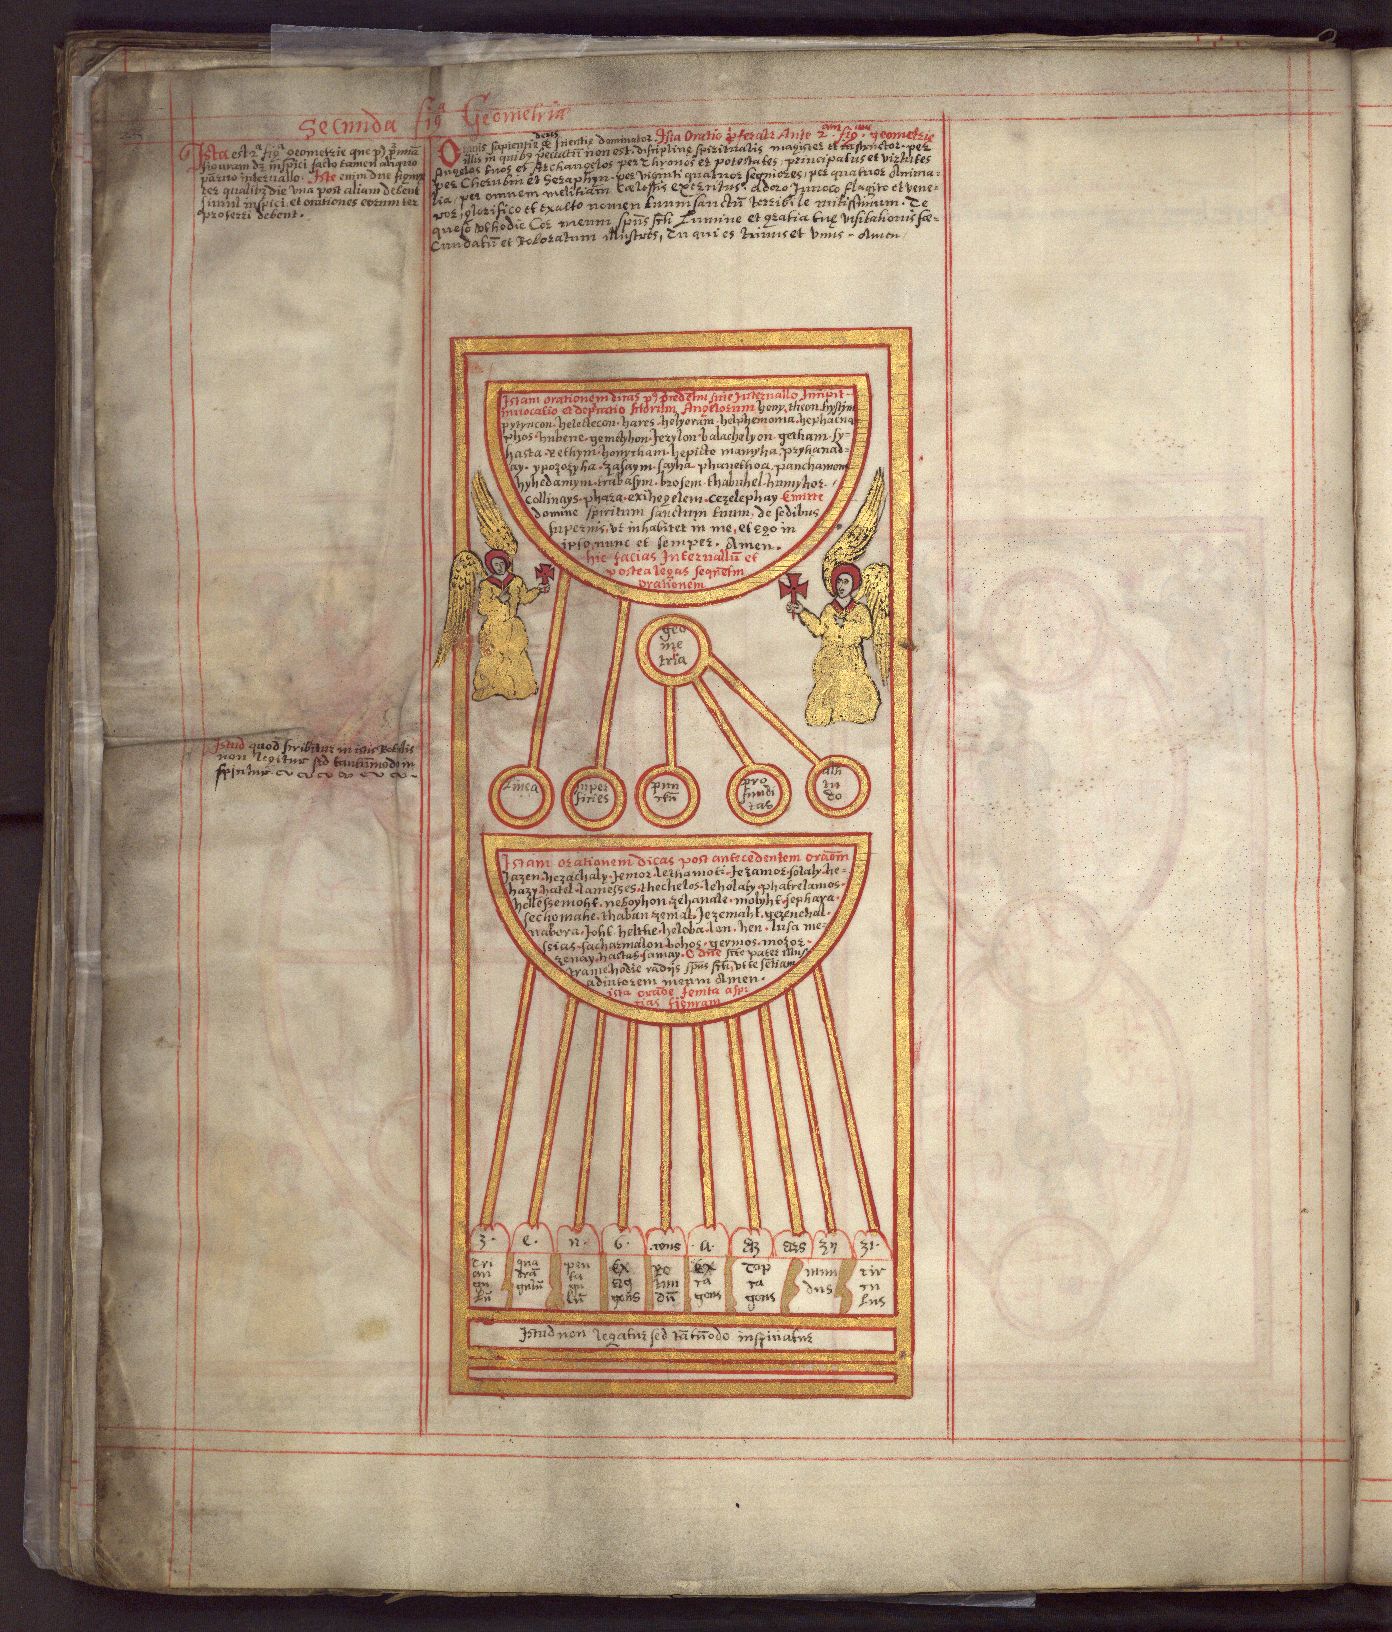 Secunda fig.a Geometriae
Ista est 2a figa Geometrie que p9 primā
figuram dz inspici facto tamen aliquo
paruo interuallo. Iste enim due figure
ter qualibz die vna post aliam debent
simul inspici et orationes eorum ter
proferri debent.
Omnis sapientiae deus et scientie dominator Ista Oratio pferatr Ante 2am figam geometrie
illis in quibus peccatū non est. discipline spiritualis magister et instructor. per
Angelos tuos et Archangelos per Thronos et potestates, principatus et virtutes
per Cherubin et Seraphyn. per viginti quatuor seniores, per quatuor Anima-
lia, per omnem militiam Cælestis exercitus. Adoro Inuoco flagito et vene-
ror, glorifico et Exalto nomen tuum sanctū terribile mitissimum. Te
queso vt hodie Cor meum spūs sctī Lumine et gratia tuę visitationis fæ-
cundatū et Roboratum illustres, Tu qui es trinus et vnus. Amen
Istam orationem dicas p9 predctm sine Interuallo Incipit
Inuocatio et deprecatio sctorum Angelorum hony. theon tystym
pytyncon. helellecon. hares. helyoram. helphemonia. hephacna
phos. hubene. gemelyhon. Jezylon. balachelyon. getham. sy-
hasta. Rethym. honytham. hepisto mamyha. pryhanad-
ay. ypozozyha. zasaym. sayha. phanethoa. panchamom
hyhedamym. trabasym. brosem. thabuhel. hamyhor.
Collingys. phara. exihegelem. cezelephay Emitte
domine spiritum sanctum tuum, de sedibus
supernis, vt inhabitet in me, et Ego in
ipso nunc et semper. Amen.
hic facias Interuallū et
postea legas sequētem
orationem
geo
me
tria
Istud quod scribitur in istis Rotulis
non legitur sed tantūmodo in
spicitur
Linea
super
ficies
pun
ctū
pro
fundi
tas
alti
tu
do
Istam orationem dicas post antecedentem oraōem
Jazen. hezachaly. Jemor. lethamoti. Jezamor. solaly. he-
hazy. hatel. lamesses. thechelos. leholaty. phabrelamos.
hellessemoht. nekoyhon. zehanale. molyht. sephara.
sechomahe. thaban zemal. Jezemaht. gezenehal.
nabera. Joht. helthe. heloba. len. hen. lusa me-
ssias. sacharmalon. bohos. germos. mozor.
zenay. hastus. samay. O dne scte pater illus-
tra me hodie radijs spūs scti, vt te sentiam
adiutorem meum Amen.
ista oraōe lemta aspi
cias figuram
3.
e.
n.
6.
.rens
.a.
dz
dzs
37
31.
tri
an
gu
lū
qua
drā
gulū
pen
ta
gu
lū
Ex
ag
gons
Ro
tun
dū
Ex
ta
gons
Top
ta
gons
mun
dus
cir
cu
lus
Istud non legatur sed tātūmodo inspiciatur